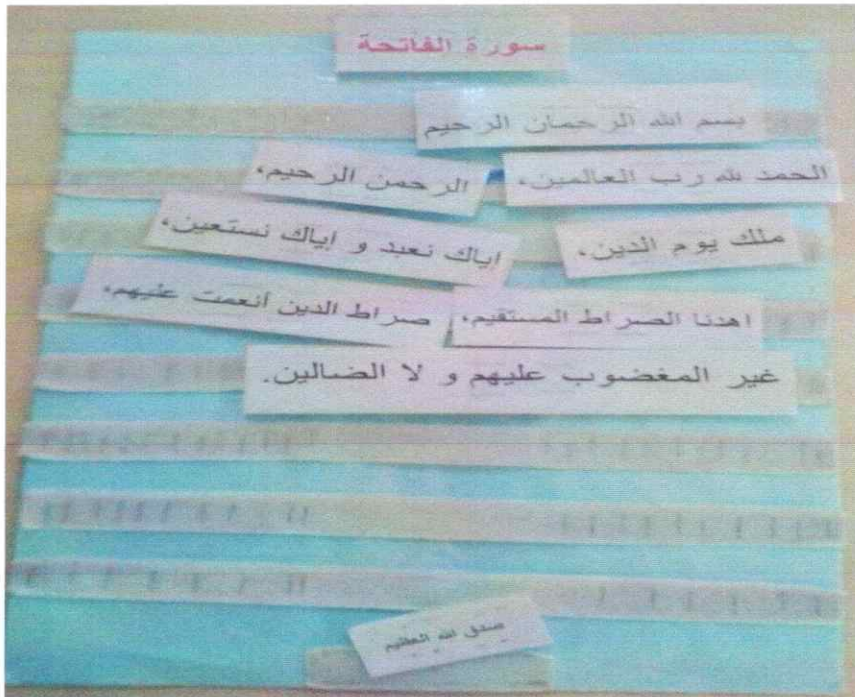 سورة الفاتحة
بسم الله الرحمان الرحيم
الحمد لله رب العالمين، الرحمن الرحيم،
ملك يوم الدين، اياك نعبد و إياك نستعين،
اهدنا الصراط المستقيم، صراط الدين أنعمت عليهم،
غير المغضوب عليهم و لا الضالين.
صدق الله العظيم